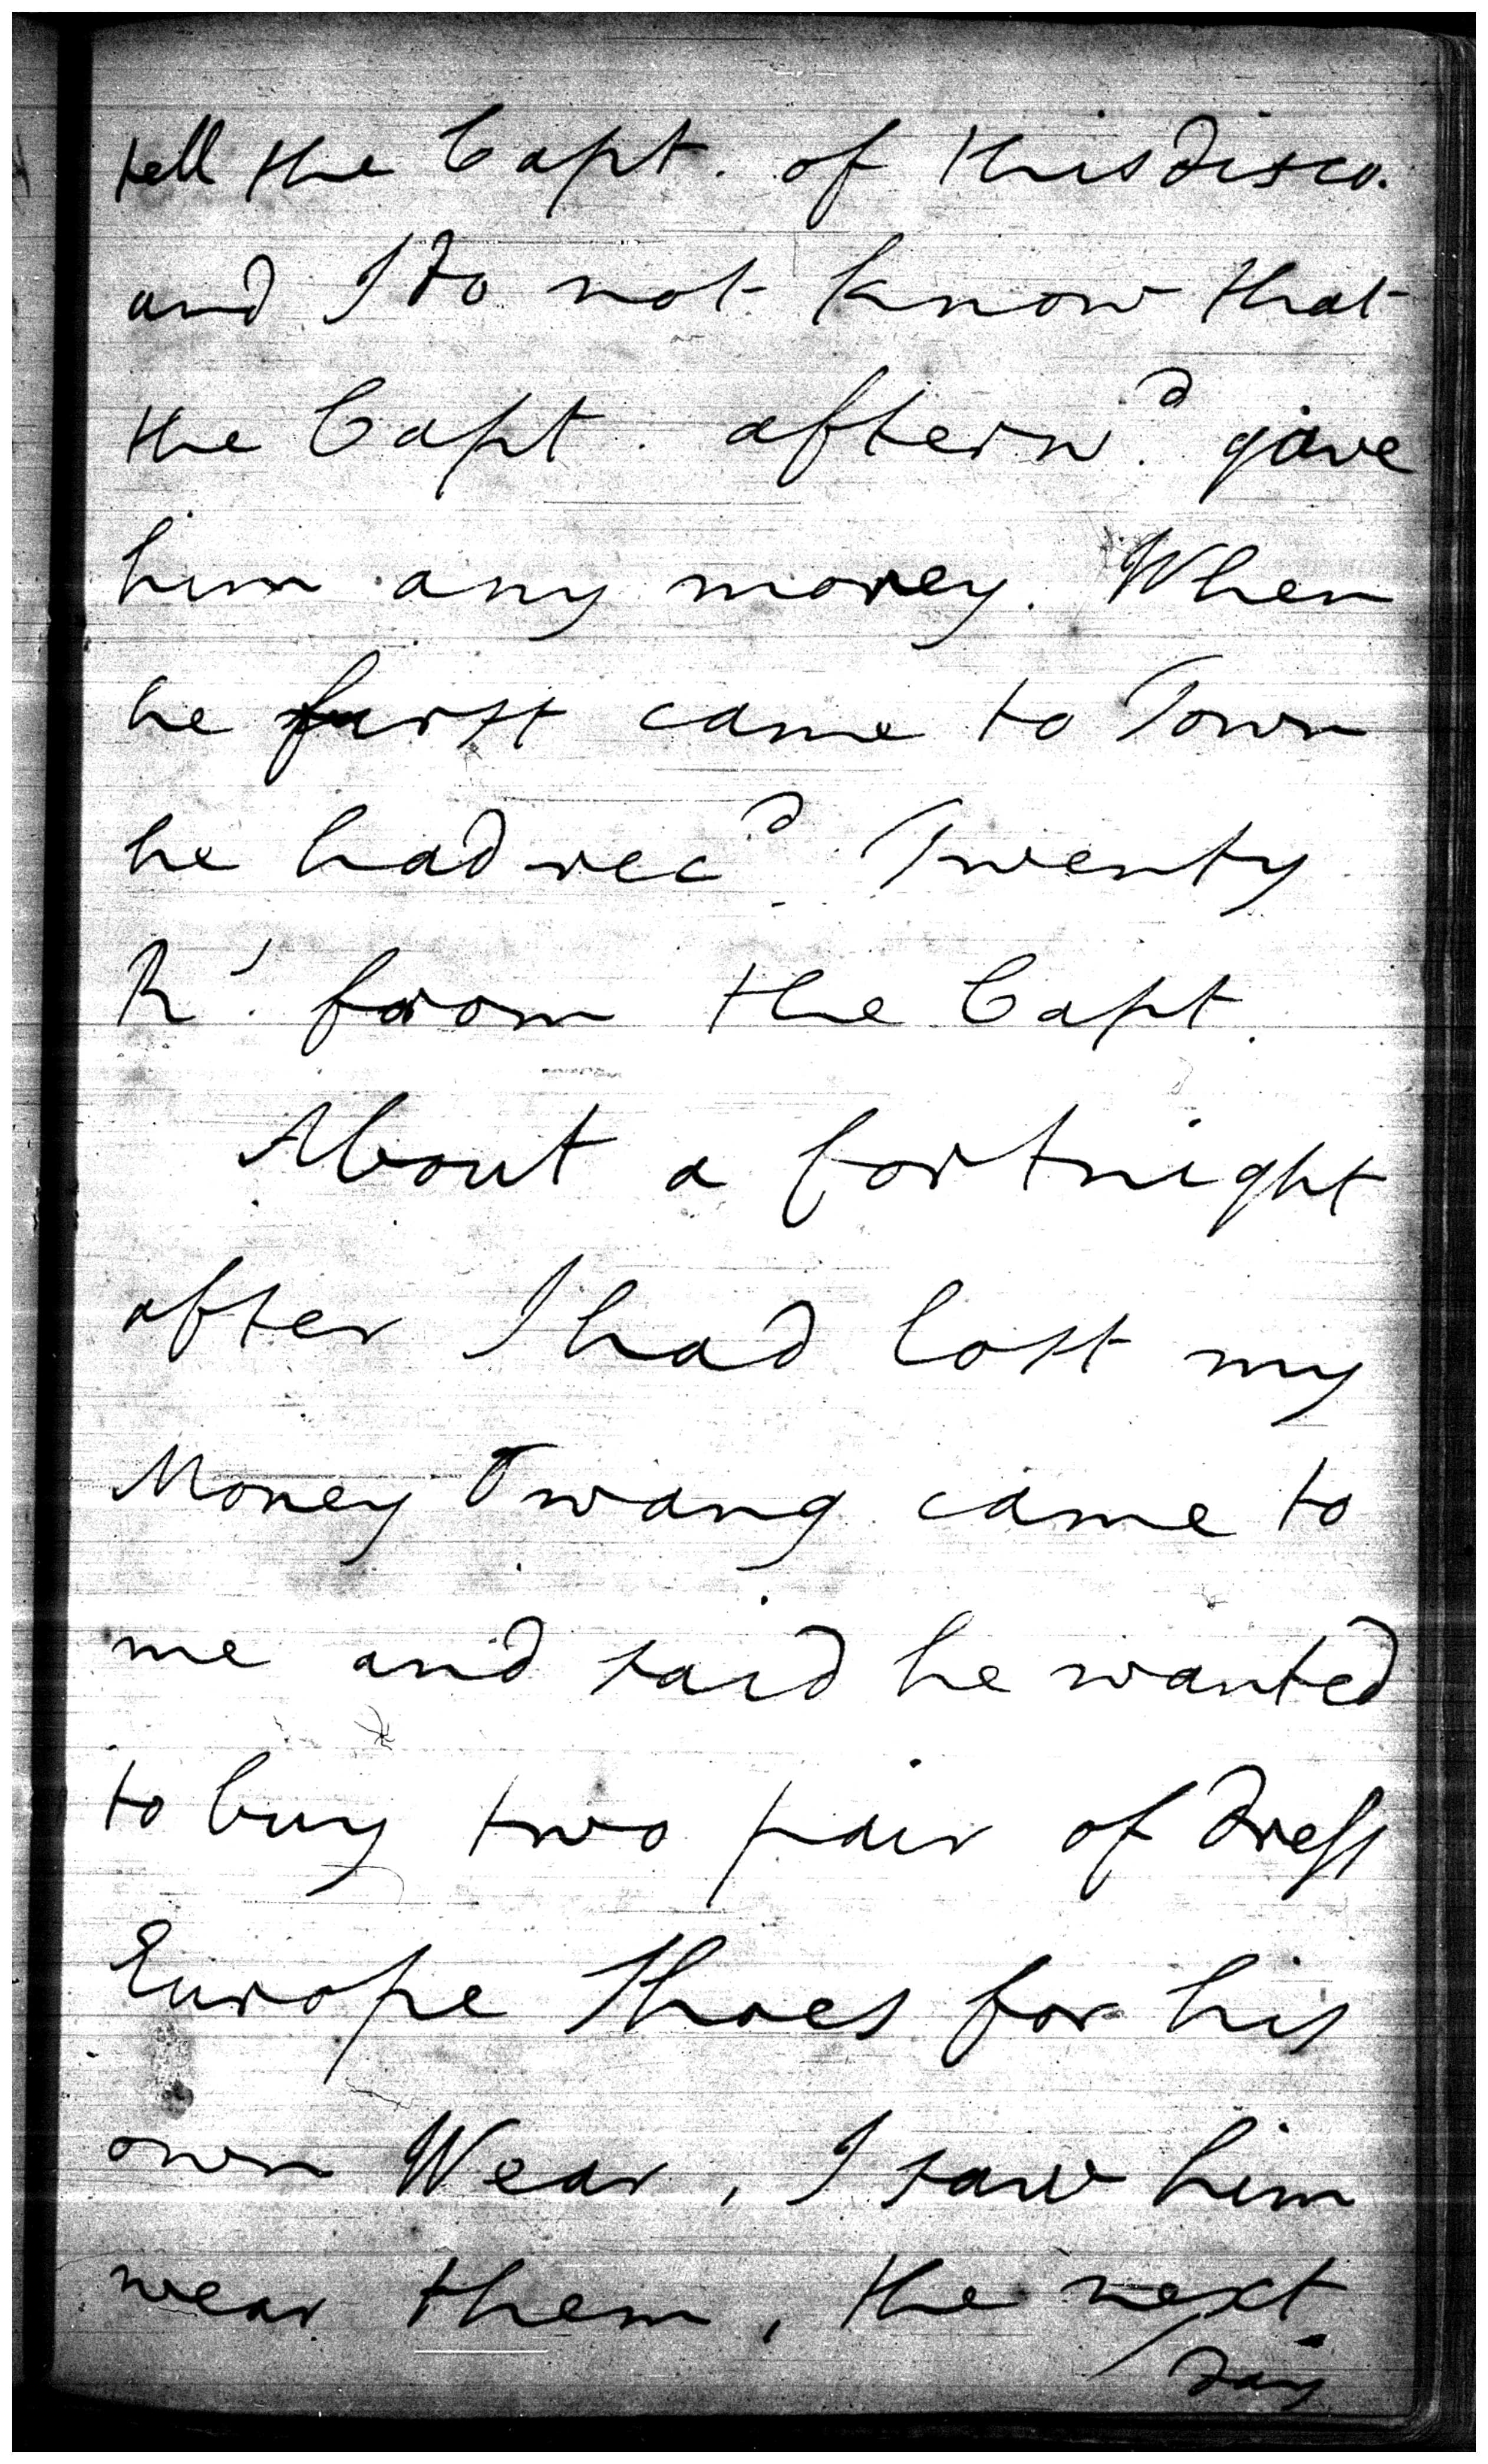 tell the Capt. of this disco.
and I do not know that
the Capt. afterwd. gave
him any money. When
he first came to Town
he had recd. Twenty
Rs. from the Capt.
About a fortnight
after I had lost my
Money Twang came to
me and said he wanted
to buy two pair of dress
Europe Shoes for his
own Wear, I saw him
wear them, the next
day